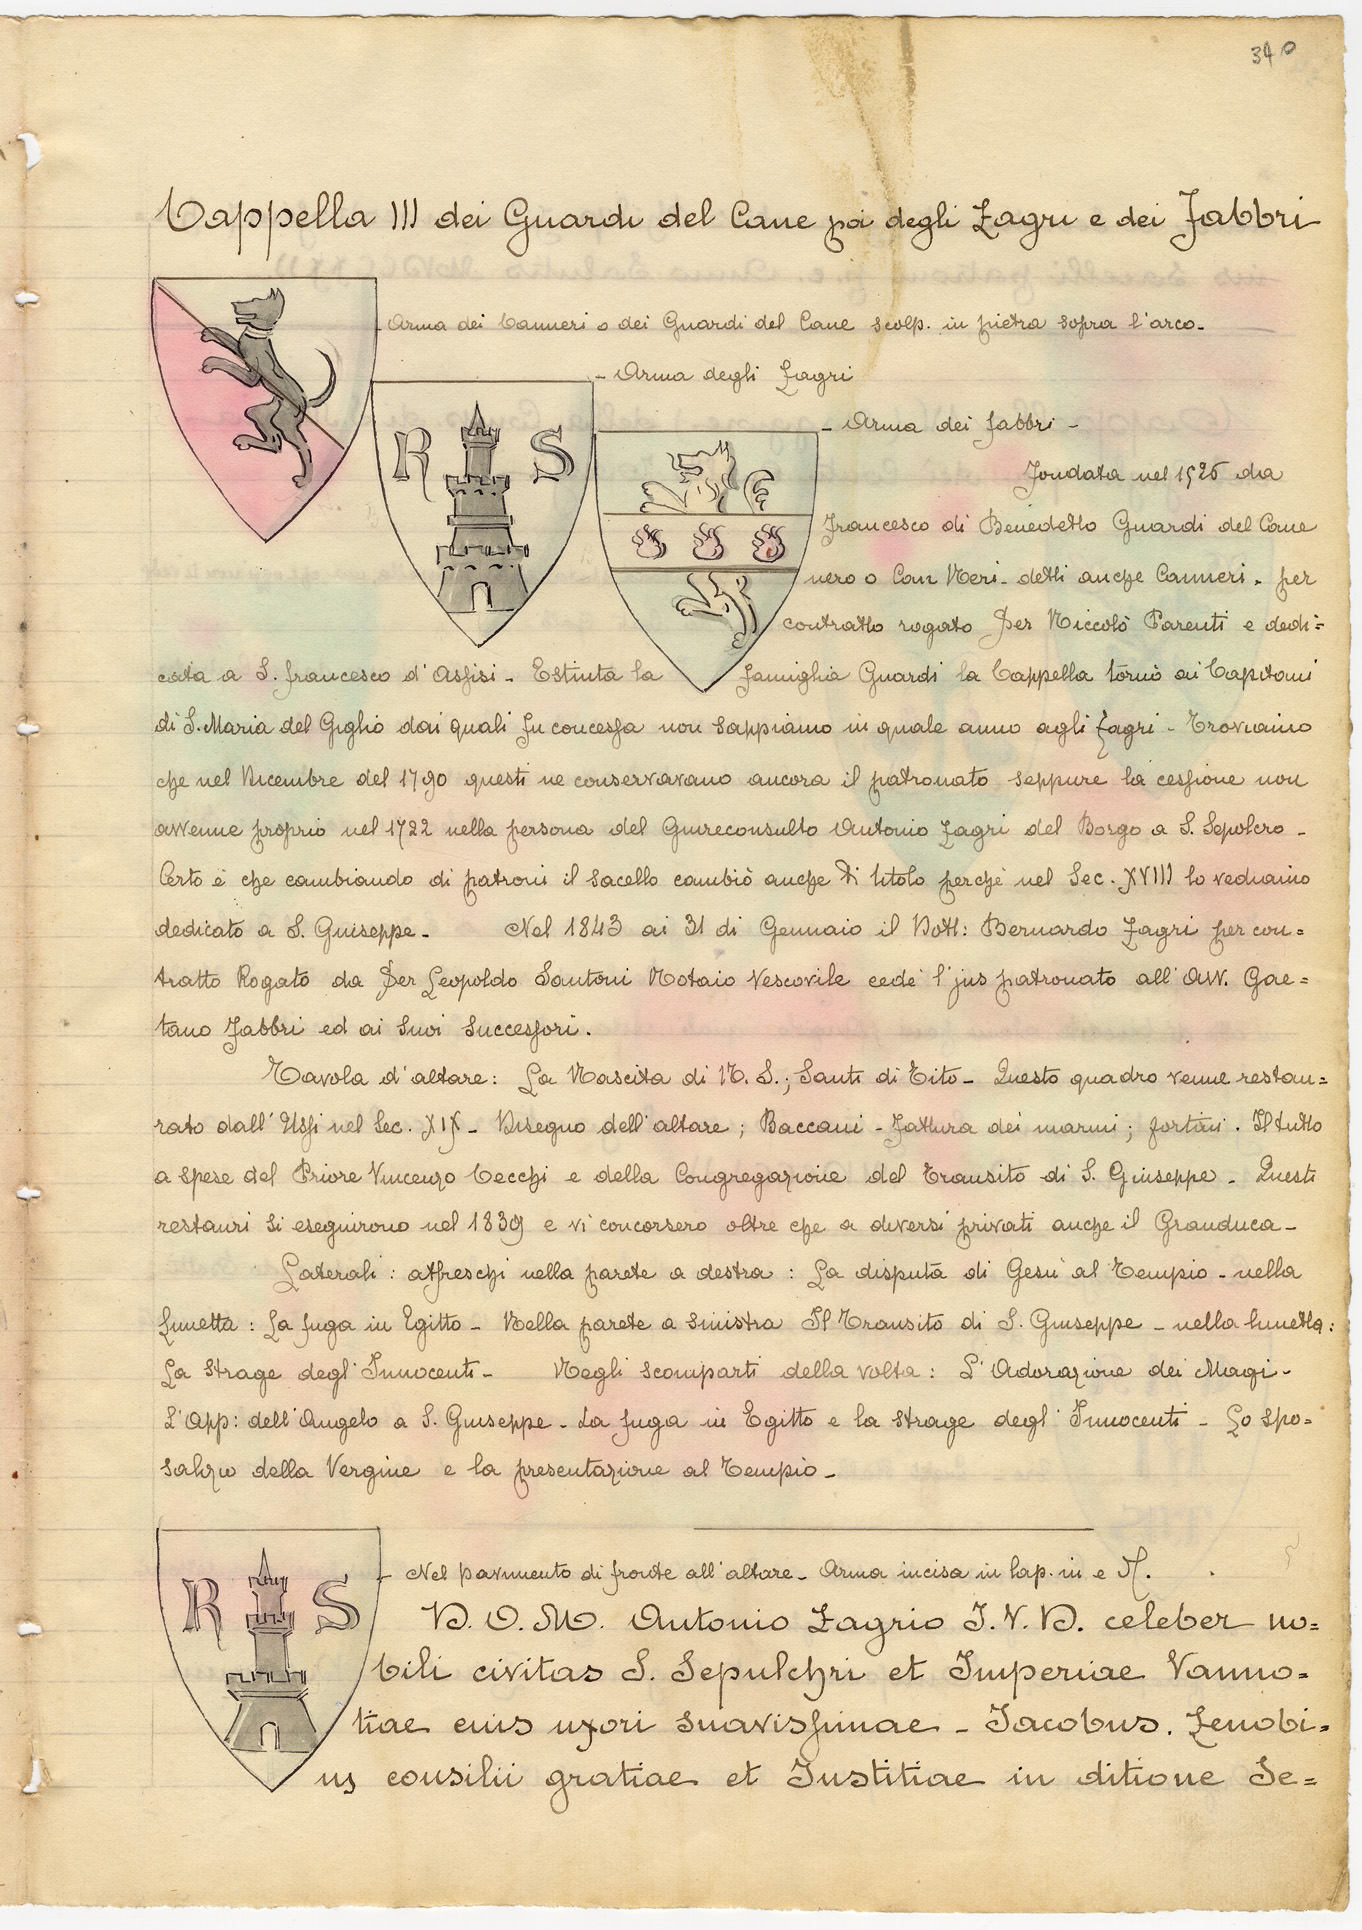 340
Cappella III dei Guardi del Cane poi degli Zagri e dei Fabbri
Arma dei Canneri o dei Guardi del Cane scolp. in pietra sopra l'arco-
- Arma degli Zagri
R S
- Arma dei Fabbri -
Fondata nel 1526 da
Francesco di Benedetto Guardi del Cane
nero o Can Neri - detti anche Canneri - per
contratto rogato Ser Niccolò Parenti e dedi=
cata a S. Francesco d'Assisi - Estinta la famiglia Guardi la Cappella tornò ai Capitani
di S. Maria del Giglio dai quali fu concessa non sappiamo in quale anno agli Zagri - Troviamo
che nel Dicembre del 1790 questi ne conservavano ancora il patronato seppure la cessione non
avvenne proprio nel 1722 nella persona del Giureconsulto Antonio Zagri del Borgo a S. Sepolcro -
Certo è che cambiando di patroni il sacello cambiò anche di titolo perchè nel Sec. XVIII lo vediamo
dedicato a S. Giuseppe - Nel 1843 ai 31 di Gennaio il Dott: Bernardo Zagri per con=
tratto Rogato da Ser Leopoldo Santoni Notaio Vescovile cedè l'jus patronato all'Avv. Gae=
tano Fabbri ed ai suoi successori.
Tavola d'altare: La Nascita di N. S.; Santi di Tito - Questo quadro venne restau=
rato dall'Ussi nel Sec. XIX - Disegno dell'altare; Baccani - Fattura dei marmi; fortini. Il tutto
a spese del Priore Vincenzo Cecchi e della Congregazione del Transito di S. Giuseppe - Questi
restauri si eseguirono nel 1839 e vi concorsero oltre che a diversi privati anche il Granduca -
Laterali: affreschi nella parete a destra: La disputa di Gesù al Tempio - nella
lunetta: La fuga in Egitto - Nella parete a sinistra Il Transito di S. Giuseppe - nella lunetta:
La strage degl'Innocenti - Negli scomparti della volta: L'Adorazione dei Magi -
L'App: dell'Angelo a S. Giuseppe - La fuga in Egitto e la strage degl'Innocenti - Lo spo=
salizio della Vergine e la presentazione al Tempio -
R S
- Nel pavimento di fronte all'altare - Arma incisa in lap. in e M.
D. O. M. Antonio Zagrio I. V. D. celeber no=
bili civitas S. Sepulchri et Imperiae Vanno=
tiae eius uxori suavissimae - Iacobus. Zenobi=
us consilii gratiae et Iustitiae in ditione Se=